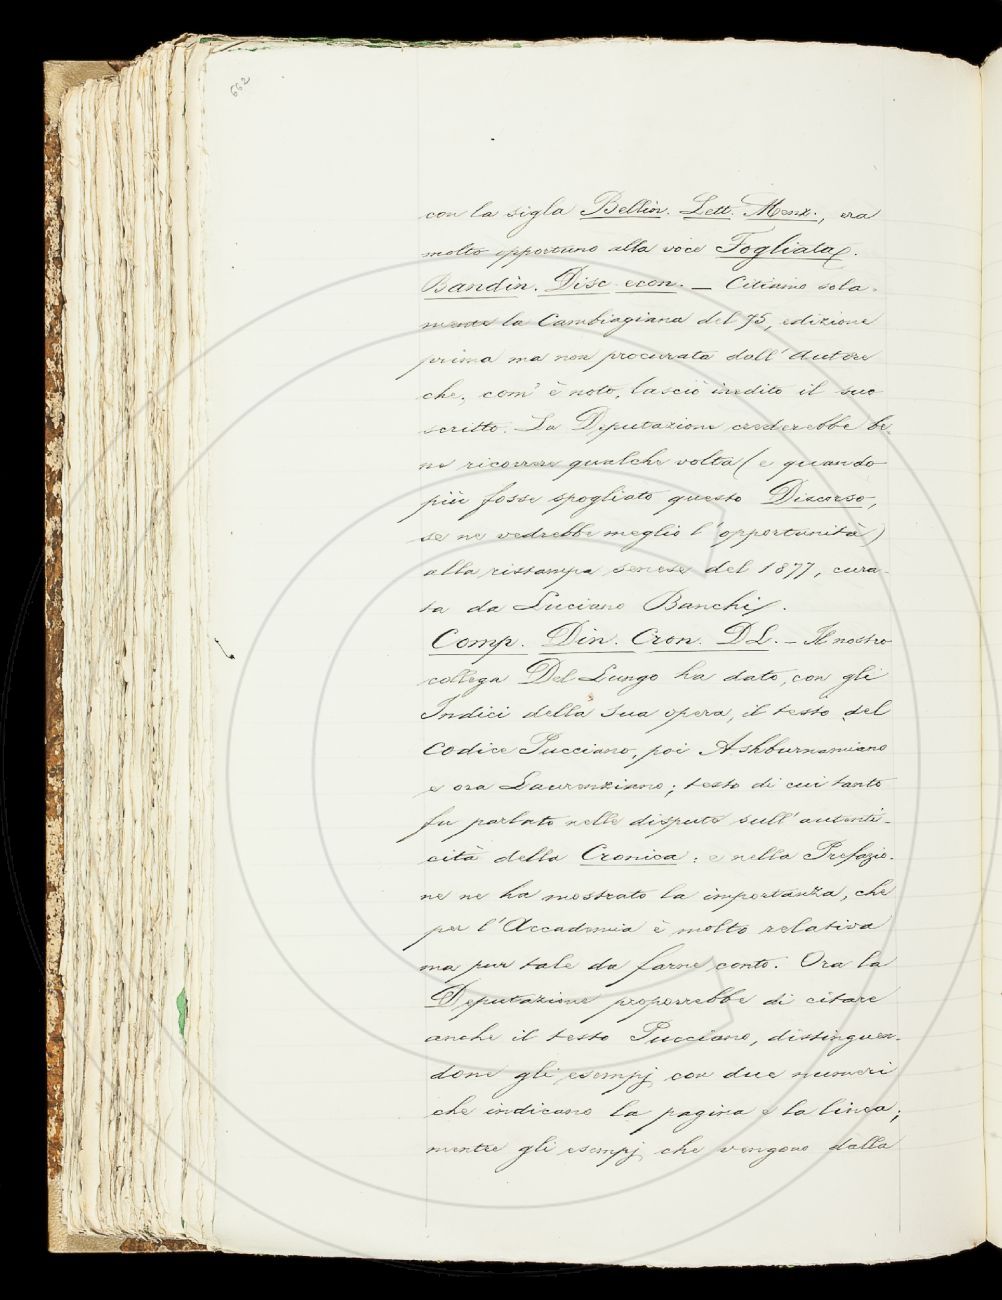 662
con la sigla Bellin. Lett. Menz., era
molto opportuno alla voce Fogliata.
Bandin. Disc. econ. — Citiamo sola-
mente la Cambiagiana del 75, edizione
prima ma non procurata dall'Autore
che, com'è noto, lasciò inedito il suo
scritto. La Deputazione crederebbe be-
ne ricorrere qualche volta (e quando
più fosse spogliato questo Discorso,
se ne vedrebbe meglio l'opportunità)
alla ristampa senese del 1877, cura-
ta da Luciano Banchi.
Comp. Din. Cron. DL. — Il nostro
collega Del Lungo ha dato, con gli
Indici della sua opera, il testo del
Codice Pucciano, poi Ashburnamiano
e ora Laurenziano; testo di cui tanto
fu parlato nelle dispute sull'autenti-
cità della Cronica: e nella Prefazio-
ne ne ha mostrato la importanza, che
per l'Accademia è molto relativa
ma pur tale da farne conto. Ora la
Deputazione proporrebbe di citare
anche il testo Pucciano, distinguen-
done gli esempj con due numeri
che indicano la pagina e la linea;
mentre gli esempj che vengono dalla